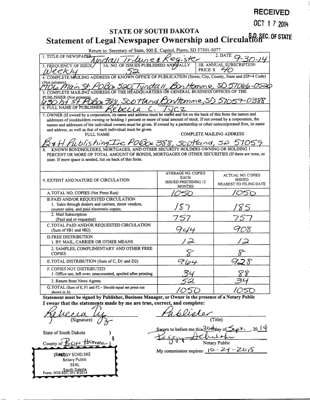 RECEIVED
OCT 17 2014
S.D. SEC. OF STATE
STATE OF SOUTH DAKOTA
Statement of Legal Newspaper Ownership and Circulation
Return to: Secretary of State, 500 E. Capitol, Pierre, SD 57501-5077
1. TITLE OF NEWSPAPER Tyndall Tribune & Register
2. DATE 9-30-14
3. FREQUENCY OF ISSUE Weekly
3A. NO. OF ISSUES PUBLISHED ANNUALLY 52
3B. ANNUAL SUBSCRIPTION PRICE $ 40
4. COMPLETE MAILING ADDRESS OF KNOWN OFFICE OF PUBLICATION (Street, City, County, State and ZIP+4 Code) (Not printers)
Main St. PO Box 520, Tyndall, Bon Homme, SD 57066-0520
5. COMPLETE MAILING ADDRESS OF THE HEADQUARTERS OR GENERAL BUSINESS OFFICES OF THE PUBLISHER (Not printer)
PO Box 388, Scotland, Bon Homme, SD 57059-0388
6. FULL NAME OF PUBLISHER: Rebecca L. Tycz
7. OWNER (If owned by a corporation, its name and address must be stated and
addresses of stockholders owning or holding 1 percent or more of total amount of stock. If not owned by a corporation, the
names and addresses of the individual owners must be given. If owned by a partnership or other unincorporated firm, its name
and address, as well as that of each individual must be given.
FULL NAME COMPLETE MAILING ADDRESS
B & H Publishing Inc PO Box 388, Scotland, SD 57059
8. KNOWN BONDHOLDERS, MORTGAGES, AND OTHER SECURITY HOLDERS OWNING OR HOLDING 1
PERCENT OR MORE OF TOTAL AMOUNT OF BONDS, MORTGAGES OR OTHER SECURITIES (If there are none, so
state. If more space is needed, list on back of this form.
9. EXTENT AND NATURE OF CIRCULATION
AVERAGE NO. COPIES EACH ISSUED PRECEDING 12 MONTHS
ACTUAL NO. COPIES ISSUED NEAREST TO FILING DATE
A. TOTAL NO. COPIES (Net Press Run) 1050 1050
B. PAID AND/OR REQUESTED CIRCULATION
1. Sales through dealers and carriers, street vendors,
counter sales, and paid electronic copies. 187 185
2. Mail Subscription
(Paid and or requested) 757 757
C. TOTAL PAID AND/OR REQUESTED CIRCULATION
(Sum of 9B1 and 9B2) 944 908
D. FREE DISTRIBUTION
1. BY MAIL, CARRIER OR OTHER MEANS 12 12
2. SAMPLES, COMPLIMENTARY AND OTHER FREE
COPIES 8 8
E. TOTAL DISTRIBUTION (Sum of C, D1 and D2) 964 928
F. COPIES NOT DISTRIBUTED
1. Office use, left over, unaccounted, spoiled after printing 34 88
2. Return from News Agents 52 34
G. TOTAL (Sum of E, F1 and F2 - Should equal net press run
shown in A) 1050 1050
Statement must be signed by Publisher, Business Manager, or Owner in the presence of a Notary Public
I swear that the statements made by me are true, correct, and complete:
Rebecca Tycz Publisher
(Signature) (Title)
State of South Dakota )
Sworn to before me this 30th day of Sept., 20 14
County of Bon Homme )
Notary Public
PEGGY SCHELSKE
Notary Public
SEAL
South Dakota
My commission expires: 10-24-2015